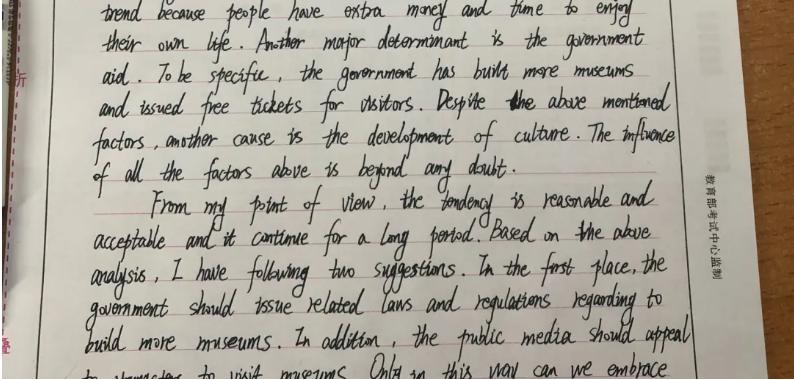 trend because people have extra money and time to enjoy
their own life. Another major determinant is the government
aid. To be specific, the government has built more museums
and issued free tickets for visitors. Despite the above mentioned
factors, another cause is the development of culture. The influence
of all the factors above is beyond any doubt.
From my point of view, the tendency is reasonable and
acceptable and it continue for a long period. Based on the above
analysis, I have following two suggestions. In the first place, the
government should issue related laws and regulations regarding to
build more museums. In addition, the public media should appeal
to to visit museums. Only in this way can we embrace
教育部考试中心监制
折